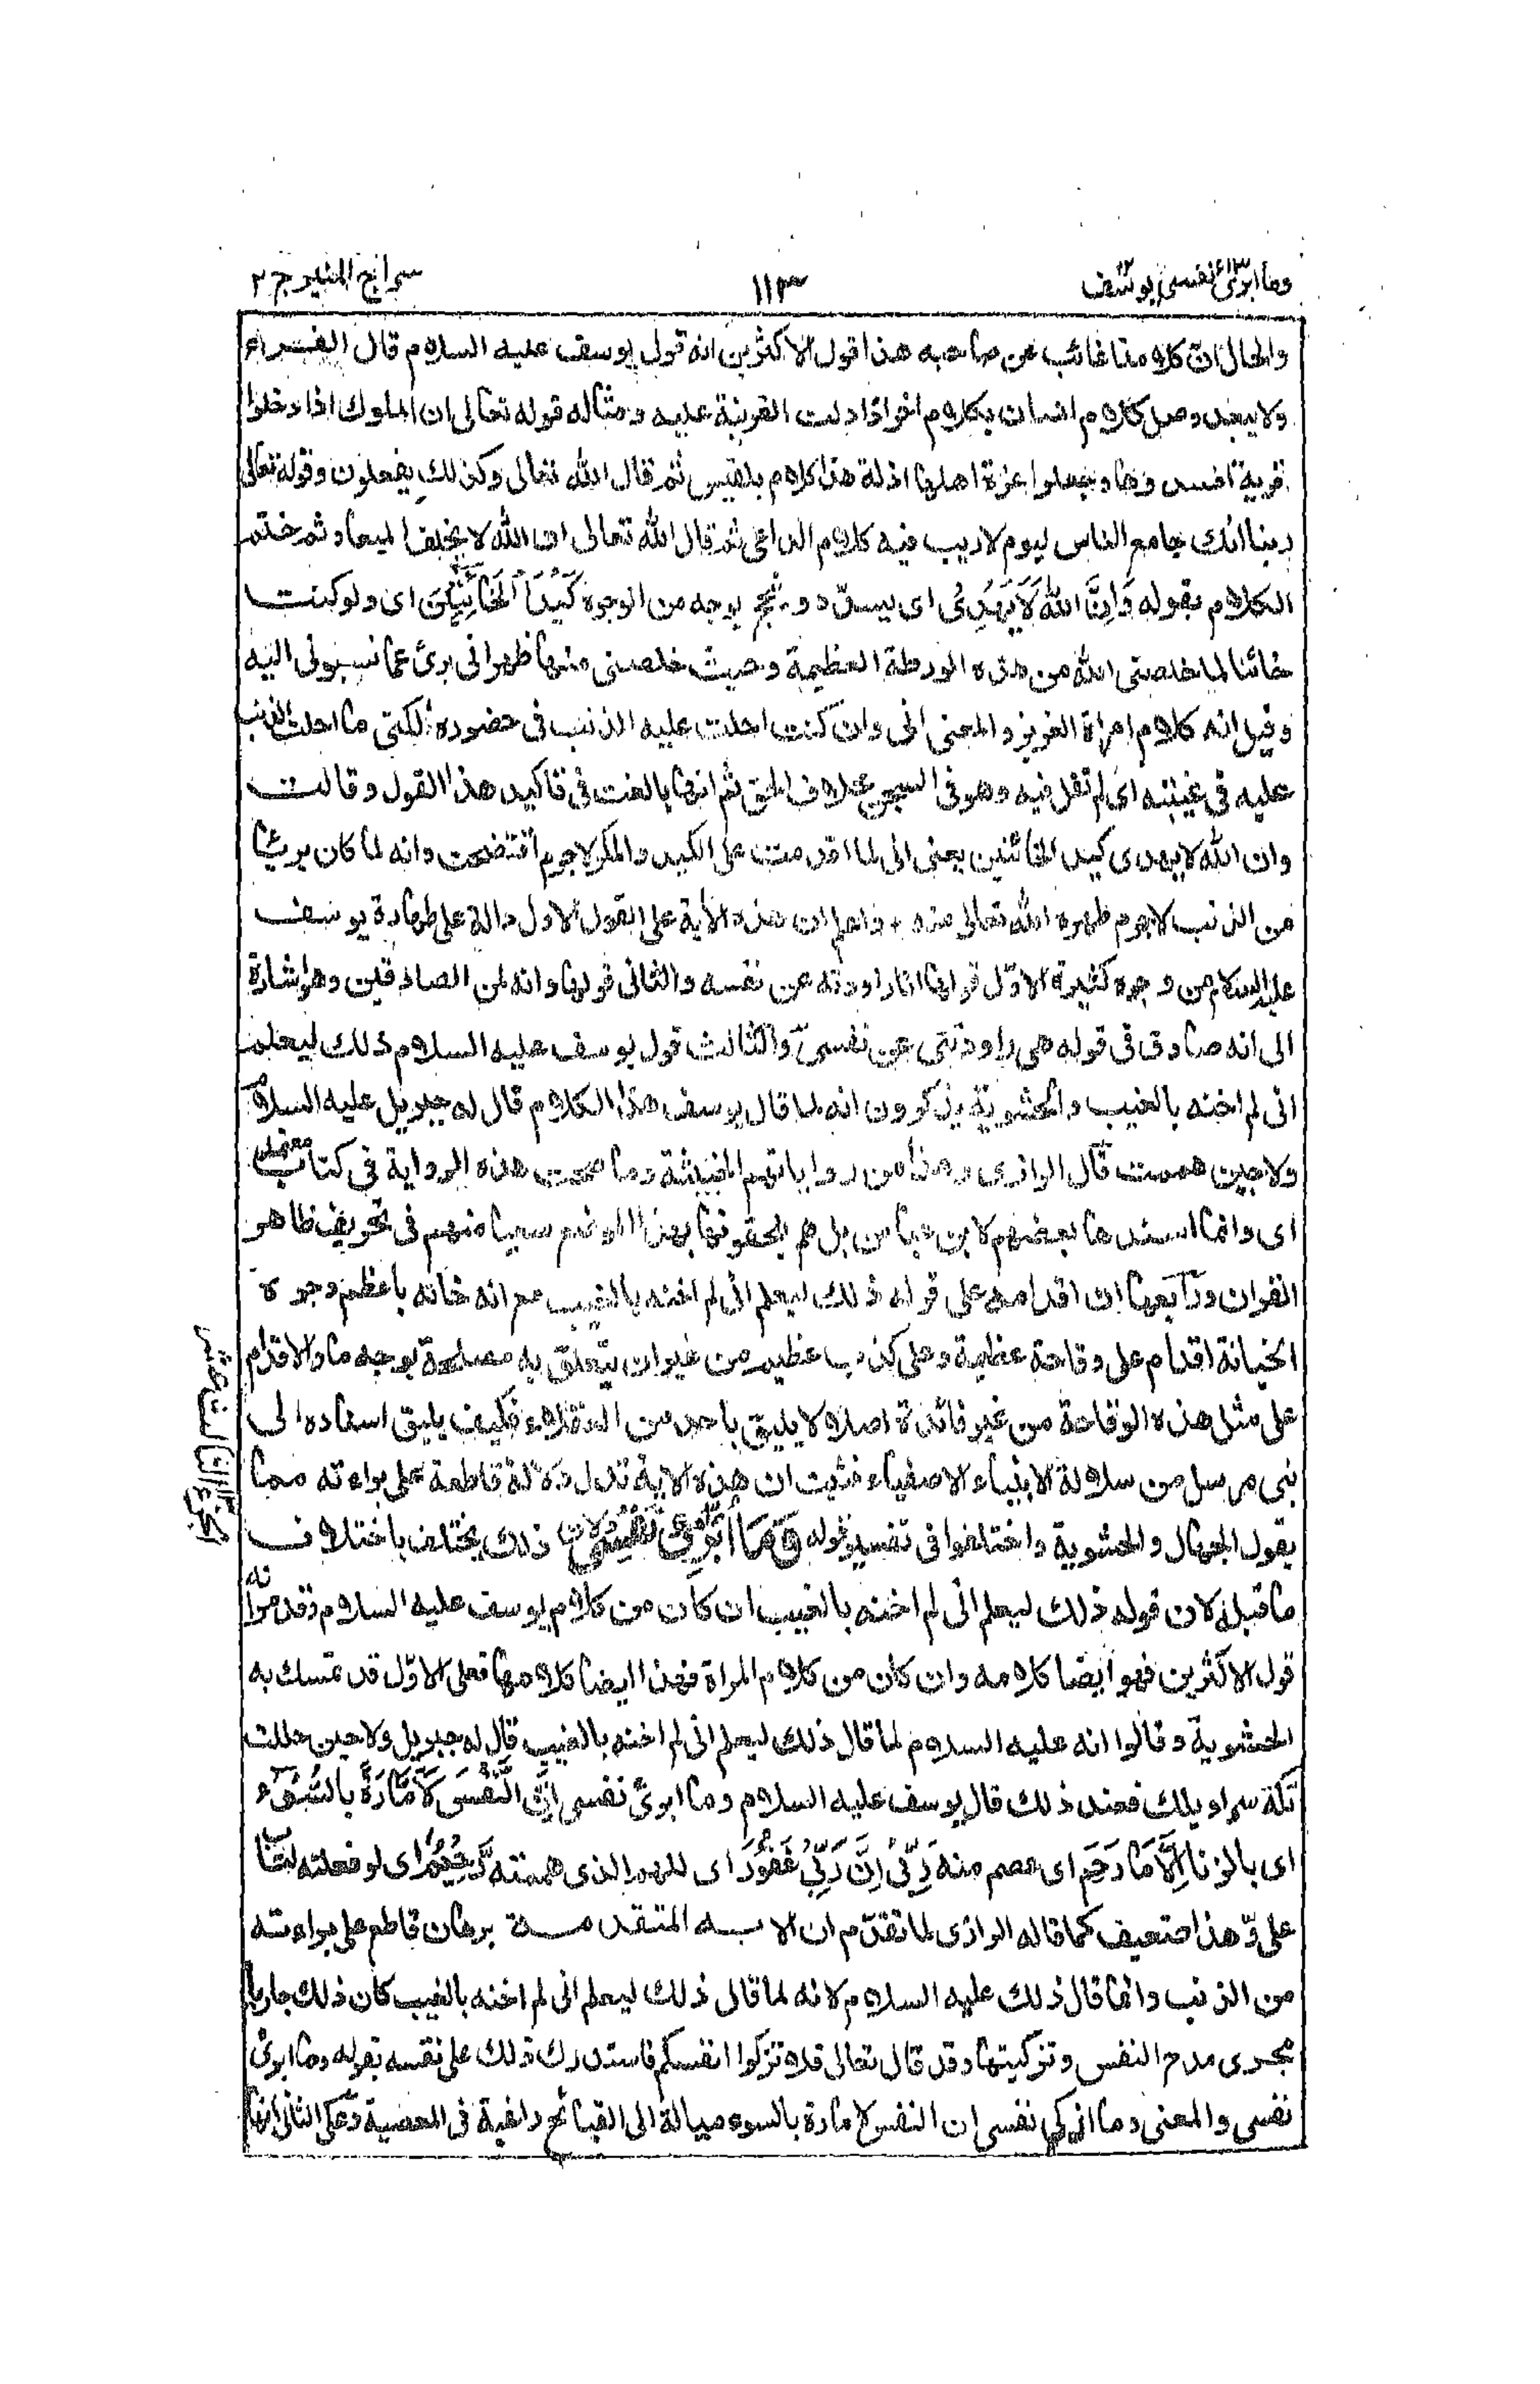 وما ابرئ نفسی ١٣ یوسف ١٢
١١٣
سراج المنیر ج ٢
والحال ان كلا منا غائب عن صاحبه هذا قول الاكثرین انه قول یوسف علیه السلام قال الفراء
ولا یبعد وصل كلام انسان بكلام اخر اذا دلت القرینة علیه ومثاله قوله تعالی ان الملوك اذا دخلوا
قریة افسدوها وجعلوا اعزة اهلها اذلة هذا كلام بلقیس ثم قال الله تعالی وكذلك یفعلون وقوله تعالی
ربنا انك جامع الناس لیوم لا ریب فیه كلام الداعی ثم قال الله تعالی ان الله لا یخلف المیعاد ثم ختم
الكلام بقوله وَاَنَّ اللهَ لَا یَهْدِیْ ای یسدد وینجح بوجه من الوجوه كَیْدَ الْخَآئِنِیْنَ ای ولو كنت
خائنا لما خلصنی الله من هذه الورطة العظیمة وحیث خلصنی منها ظهر انی بریٔ عما نسبونی الیه
وقیل انه كلام امرأة العزیز والمعنی انی وان كنت احلت علیه الذنب فی حضوره لكنی ما احلت الذنب
علیه فی غیبته ای لم نقل فیه وهو فی السجن خلاف الحق ثم انها بالغت فی تاكید هذا القول وقالت
وان الله لا یهدی كید الخائنین یعنی انی لما اقدمت علی الكید والمكر لا جرم افتضحت وانه لما كان بریئا
من الذنب لا جرم طهره الله تعالی منه ٠ واعلم ان هذه الآیة علی القول الاول دالة علی طهارة یوسف
علیه السلام من وجوه كثیرة الاوّل قولها انا راودته عن نفسه والثانی قولها وانه لمن الصادقین وهو اشارة
الی انه صادق فی قوله هی راودتنی عن نفسی والثالث قول یوسف علیه السلام ذلك لیعلم
انی لم اخنه بالغیب والحشویة یذكرون انه لما قال یوسف هذا الكلام قال له جبریل علیه السلام
ولا حین هممت قال الرازی وهذا من روایاتهم الخبیثة وما صحت هذه الروایة فی كتاب معتمد
ای وانما اسندها بعضهم لابن عباس بل هم یلحقونها بهذا الموضع سعیا منهم فی تحریف ظاهر
القران ورابعها ان اقدامه علی قوله ذلك لیعلم انی لم اخنه بالغیب مع انه خانه باعظم وجوه
الخیانة اقدام علی وقاحة عظیمة وعلی كذب عظیم من غیر ان یتعلق به مصلحة بوجه ما والاقدام
علی مثل هذه الوقاحة من غیر فائدة اصلا لا یلیق باحد من العقلاء فكیف یلیق اسناده الی
نبی مرسل من سلالة الانبیاء الاصفیاء فثبت ان هذه الایة تدل دلالة قاطعة علی براءته مما
یقول الجهال والحشویة واختلفوا فی تفسیر قوله وَمَا أُبَرِّئُ نَفْسِیْ لان ذلك یختلف باختلاف
ما قبله لان قوله ذلك لیعلم انی لم اخنه بالغیب ان كان من كلام یوسف علیه السلام وقد مر انه
قول الاكثرین فهو ایضا كلامه وان كان من كلام المراة فهذا ایضا كلامها فعلی الاوّل قد تمسك به
الحشویة وقالوا انه علیه السلام لما قال ذلك لیعلم انی لم اخنه بالغیب قال له جبریل ولا حین حللت
تكة سراویلك فعند ذلك قال یوسف علیه السلام وما ابرئ نفسی اِنَّ النَّفْسَ لَاَمَّارَةٌ بِالسُّوْٓءِ
ای بالزنا اِلَّا مَا رَحِمَ ای عصم منه رَبِّیْ اِنَّ رَبِّیْ غَفُوْرٌ ای للهم الذی هممته رَّحِیْمٌ ای لو فعلته لتاب
علیّ وهذا ضعیف كما قاله الرازی لما تقدّم ان الایة المتقدمة برهان قاطع علی براءته
من الذنب وانما قال ذلك علیه السلام لانه لما قال ذلك لیعلم انی لم اخنه بالغیب كان ذلك جاریا
مجری مدح النفس وتزكیتها وقد قال تعالی فلا تزكوا انفسكم فاستدرك ذلك علی نفسه بقوله وما ابرئ
نفسی والمعنی وما ازكی نفسی ان النفس لامارة بالسوء میالة الی القبائح راغبة فی المعصیة وعلی الثانی انها
الجزء الثالث عشر